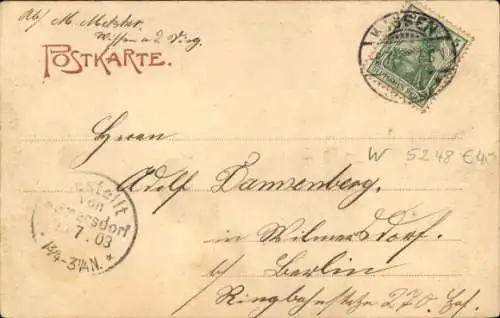 Abs/ M. Metzler.
Wissen a. d. Sieg.
POSTKARTE.
Herrn
Adolf Dannenberg.
in Wilmersdorf.
b/ Berlin
Ringbahnstraße 270. Hof.
W 5248 €4,-
Bestellt
von
Wilmersdorf
7.03
1¾-3¼N.